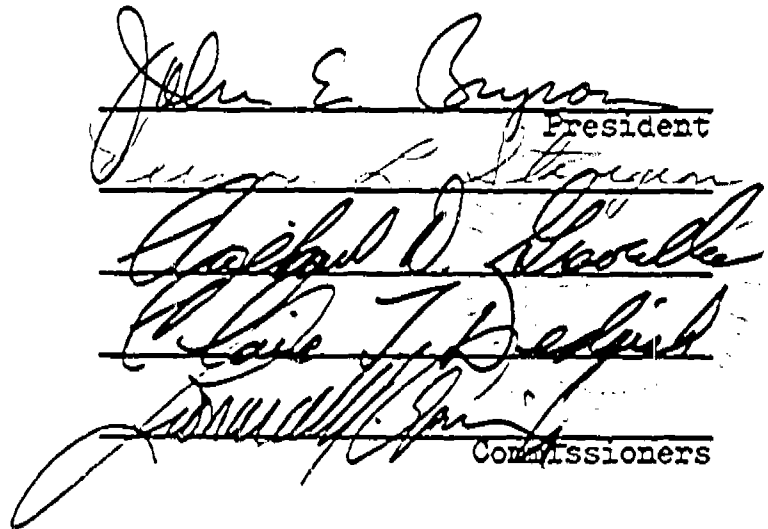 John E. Bryson
President
Vernon L. Sturgeon
Richard D. Gravelle
Claire T. Dedrick
Commissioners